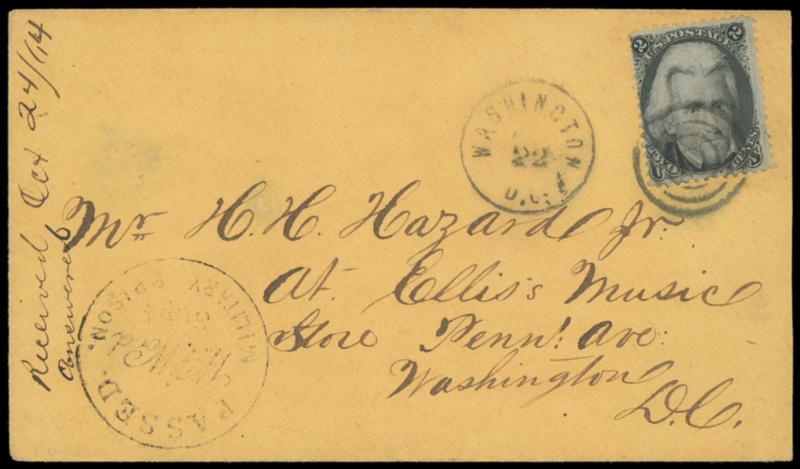 Received Oct 24/14
Answered
U.S. POSTAGE
2 2
WASHINGTON
22
D.C.
Mr H. H. Hazard Jr.
At. Ellis's Music
Store Penn! Ave.
Washington
D.C.
PASSED.
MILITARY PRISON.
Supt
W.P. Wood